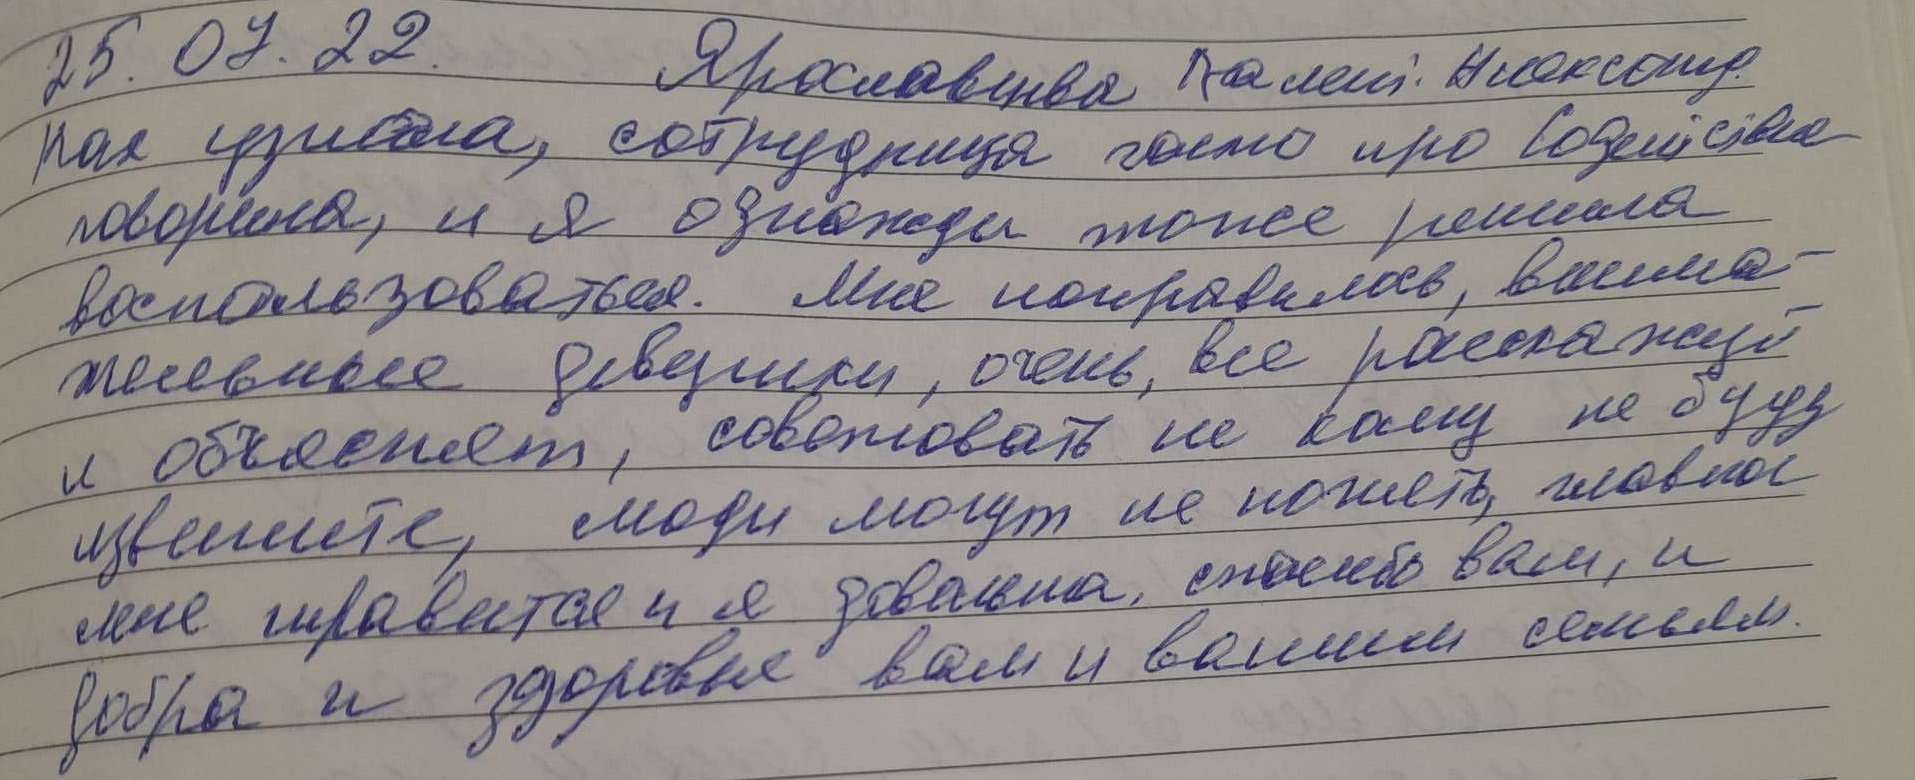 25.07.22. Ярославцева Галин. Александр.
Как узнала, сотрудница часто про Содействие
говорила, и я однажды тоже решила
воспользоваться. Мне понравилось, внима-
тельные девушки, очень, все расскажут
и объяснят, советовать не кому не буду
извените, люди могут не понять, главное
мне нравится и я довольна, спасибо вам, и
добра и здоровья вам и вашим семьям.